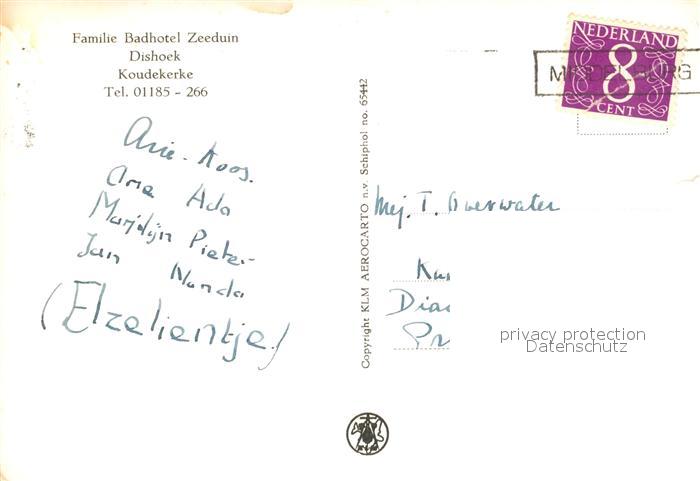 Familie Badhotel Zeeduin
Dishoek
Koudekerke
Tel. 01185 - 266
Arie - Koos.
Arie Ada
Marjolijn Pieter
Jan Nanda
(Elzelientje)
Copyright KLM AEROCARTO n.v. Schiphol no. 65442
NEDERLAND
8
CENT
MIDDELBURG
Mej. T. Overwater
Dia
Pr
privacy protection
Datenschutz